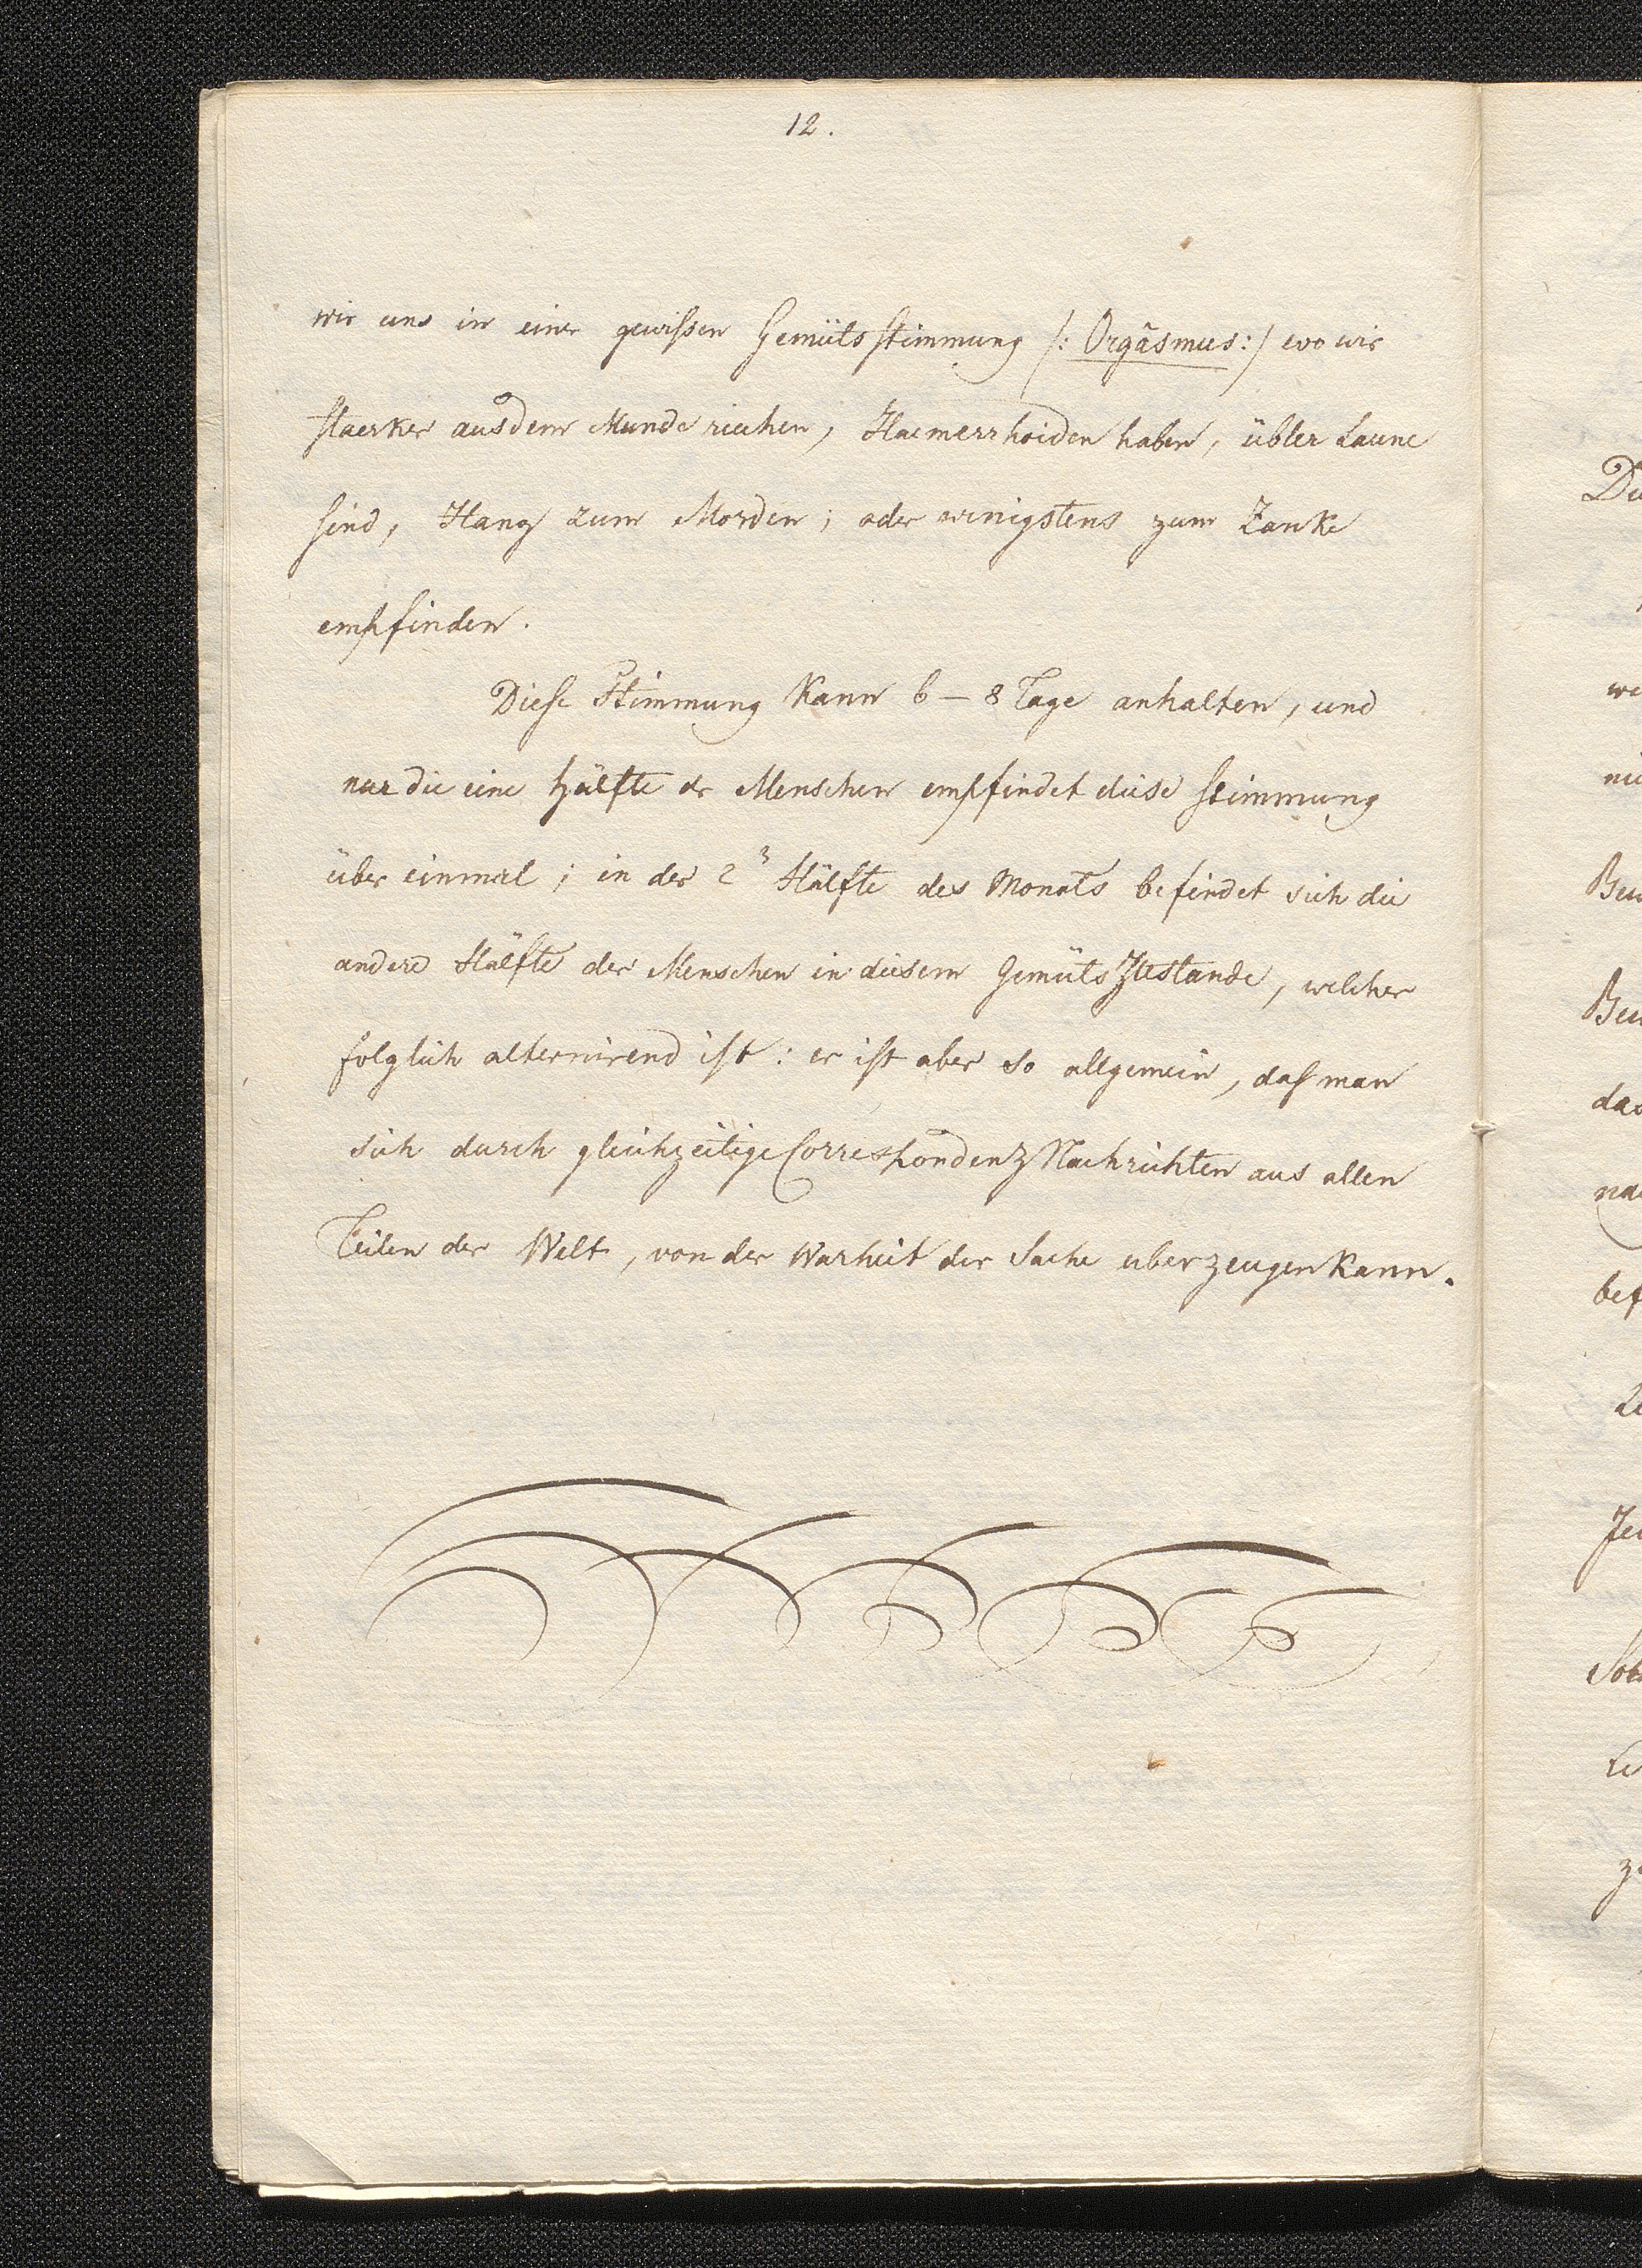 12.
wir uns in einer gewissen Gemütsstimmung /: Orgäsmus :/ wo wir
staerker aus dem Munde riechen, Haemerrhoiden haben, übler Laune
sind, Hang zum Morden; oder wenigstens zum Zanke
empfinden.
Diese Stimmung kann 6 – 8 Tage anhalten, und
nur die eine Hälfte der Menschen empfindet diese Stimmung
über einmal; in der 2 Hälfte des Monats befindet sich die
andere Hälfte der Menschen in diesem GemütsZustande, welcher
folglich alternirend ist: er ist aber so allgemein, daß man
sich durch gleichzeitige CorrespondenzNachrichten aus allen
Teilen der Welt, von der Warheit der Sache uberzeugen kann.